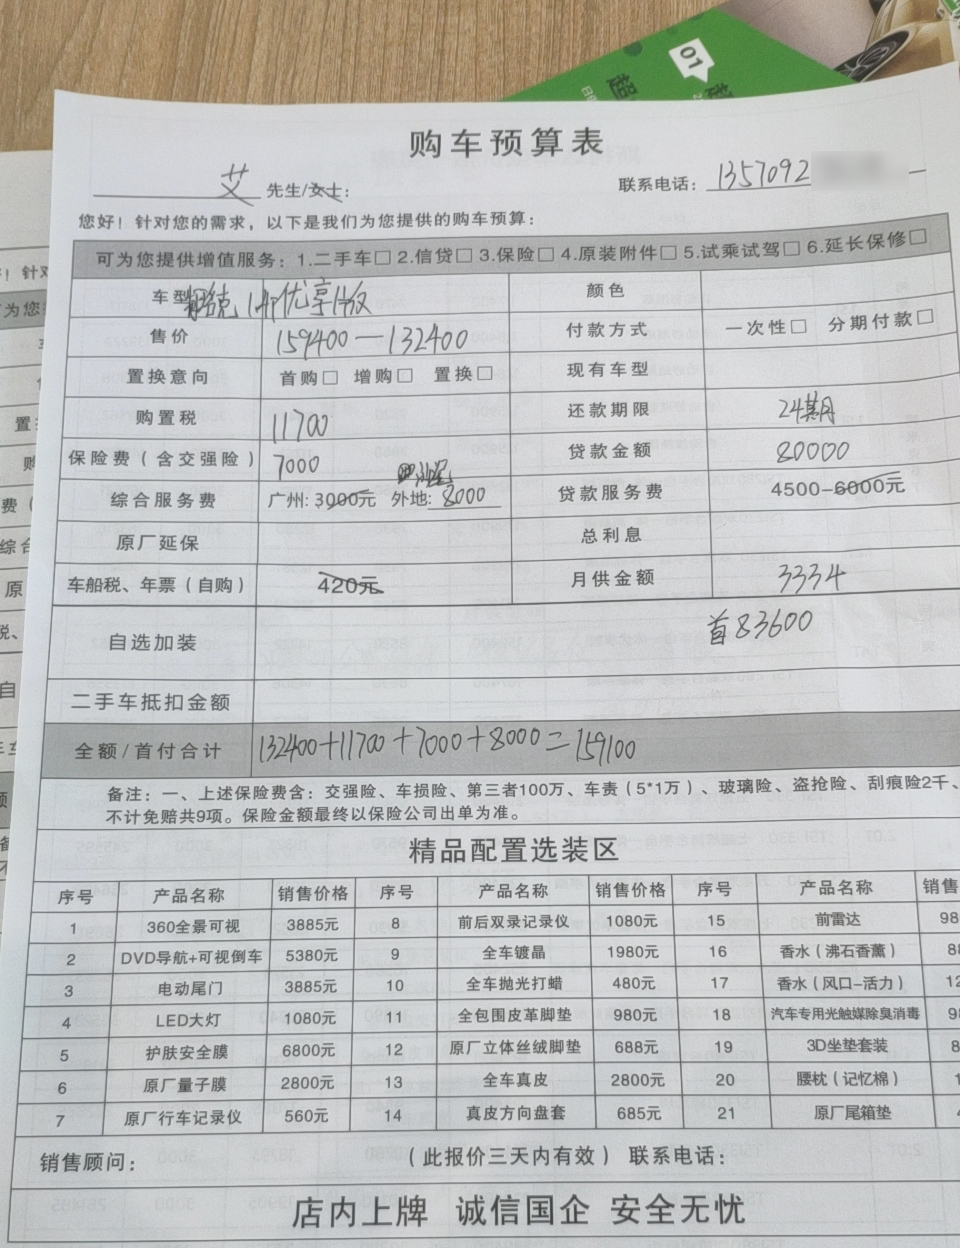 01
购车预算表
艾 先生/女士： 联系电话： 1357092
您好！针对您的需求，以下是我们为您提供的购车预算：
可为您提供增值服务：1.二手车□ 2.信贷□ 3.保险□ 4.原装附件□ 5.试乘试驾□ 6.延长保修□
车型 优享 颜色
售价 159400-132400 付款方式 一次性□ 分期付款□
置换意向 首购□ 增购□ 置换□ 现有车型
购置税 11700 还款期限 24期
保险费（含交强险） 7000 贷款金额 80000
综合服务费 广州:3000元 外地:8000 贷款服务费 4500-6000元
原厂延保 总利息
车船税、年票（自购） 420元 月供金额 3334
自选加装 首83600
二手车抵扣金额
全额/首付合计 132400+11700+7000+8000=159100
备注：一、上述保险费含：交强险、车损险、第三者100万、车责（5*1万）、玻璃险、盗抢险、刮痕险2千、
不计免赔共9项。保险金额最终以保险公司出单为准。
精品配置选装区
序号 产品名称 销售价格 序号 产品名称 销售价格 序号 产品名称 销售
1 360全景可视 3885元 8 前后双录记录仪 1080元 15 前雷达 98
2 DVD导航+可视倒车 5380元 9 全车镀晶 1980元 16 香水（沸石香薰） 88
3 电动尾门 3885元 10 全车抛光打蜡 480元 17 香水（风口-活力） 12
4 LED大灯 1080元 11 全包围皮革脚垫 980元 18 汽车专用光触媒除臭消毒 98
5 护肤安全膜 6800元 12 原厂立体丝绒脚垫 688元 19 3D坐垫套装 8
6 原厂量子膜 2800元 13 全车真皮 2800元 20 腰枕（记忆棉） 1
7 原厂行车记录仪 560元 14 真皮方向盘套 685元 21 原厂尾箱垫 4
销售顾问： （此报价三天内有效） 联系电话：
店内上牌 诚信国企 安全无忧